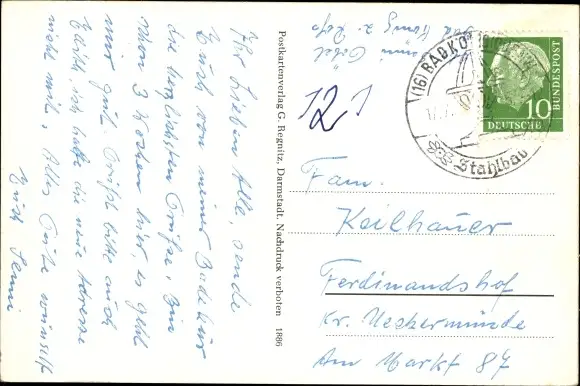 Ihr Lieben Alle, sende
Euch von meiner Badekur
die herzlichsten Grüße. Bin
schon 3 Wochen hier, es geht
mir gut. Grüßt bitte auch
ich habe die neue Adresse
nicht mit. Alles Gute wünscht
Euch
Postkartenverlag G. Regnitz, Darmstadt. Nachdruck verboten 1886
Bad König
121
(16) BAD KÖNIG
Stahlbad
10
DEUTSCHE
BUNDESPOST
Fam.
Keilhauer
Ferdinandshof
Kr. Ueckermünde
Am Markt 87